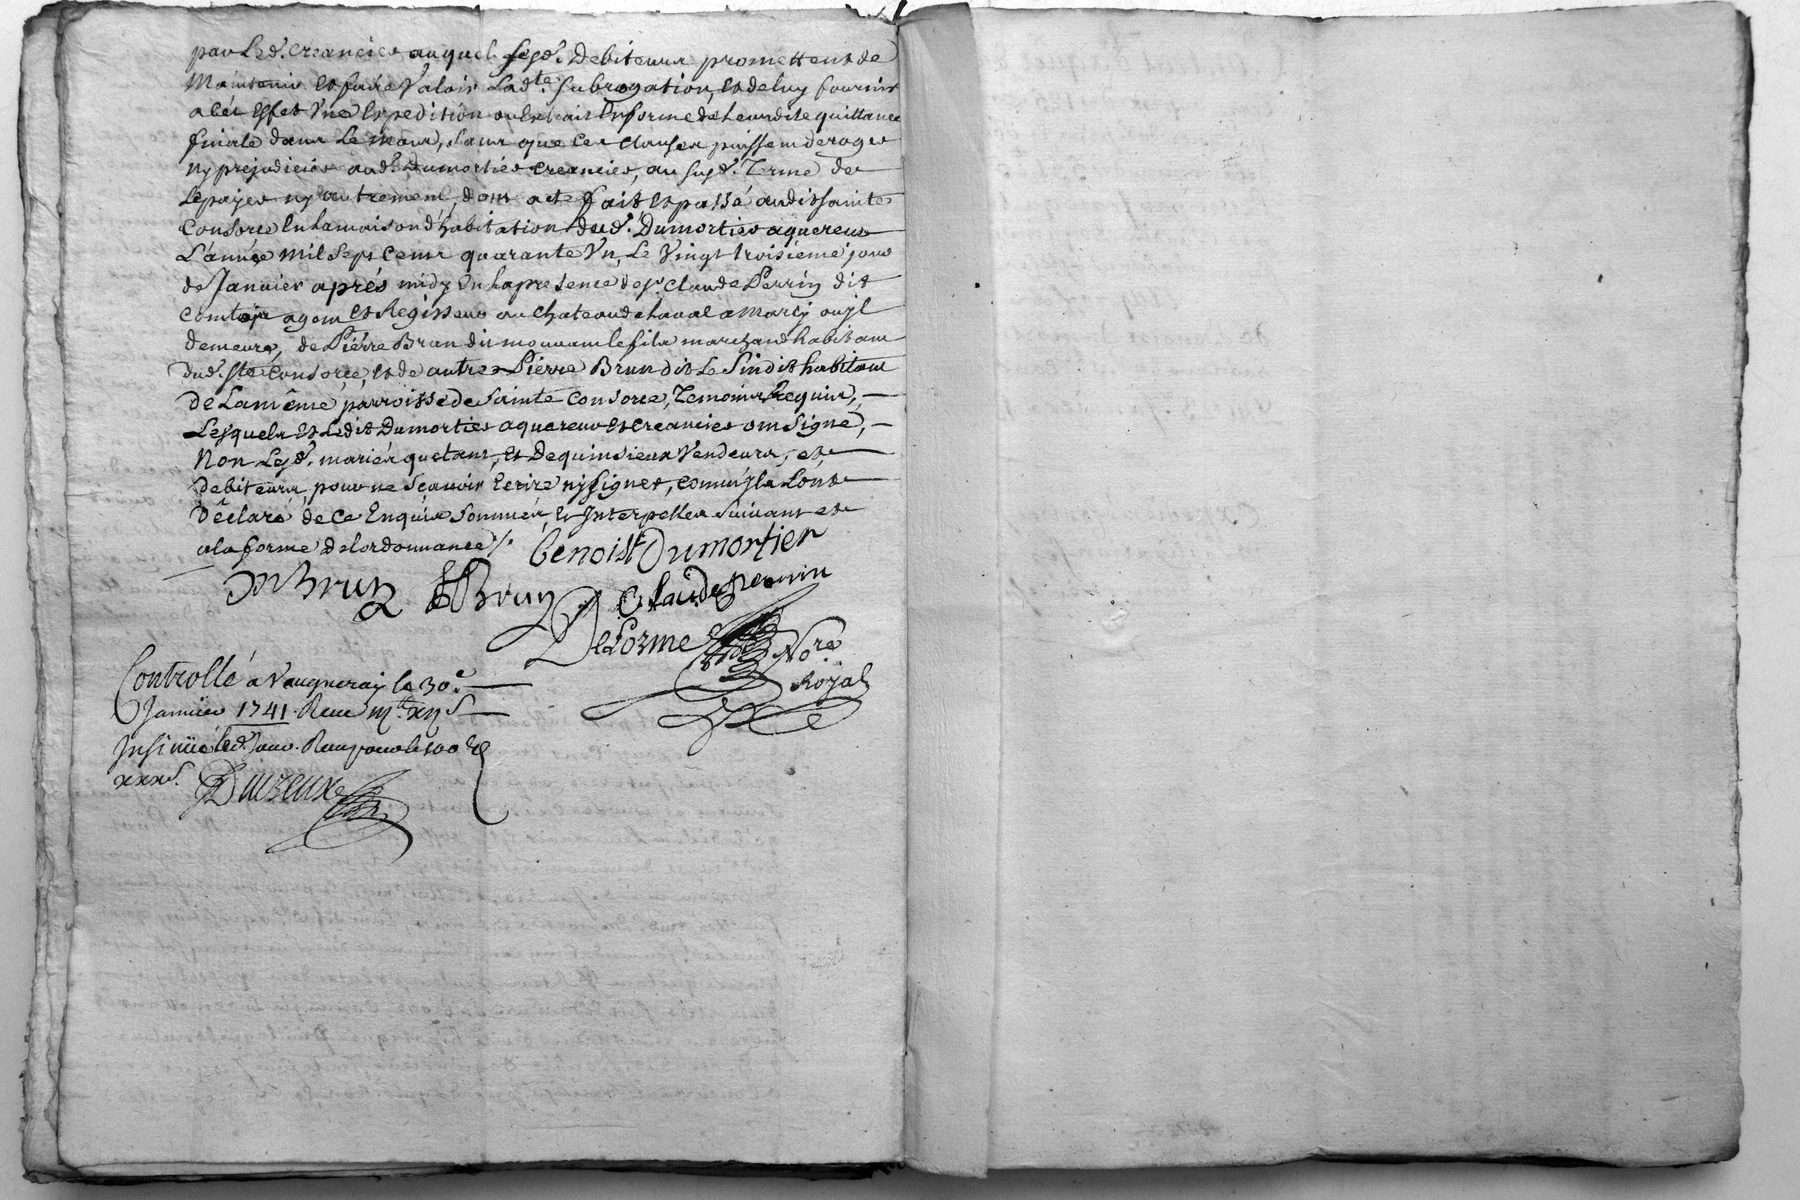 par Led. creancier auquel Lesd. Debiteurs promettent de
Maintenir et faire Valoir Ladte. subrogation, et de luy fournir
a cet effet Une Expedition ou Extrait En forme de Leurdite quittance
finale dans Le mois, sans que Ces Clauses puissent deroger
ny prejudicier aud. Dumortier creancier, au susd. Terme de
Le payer ny autrement, dont acte fait et passé audit sainte
Consorce En La maison d'habitation dud. Dumortier aquereur
L'année Mil Sept Cent quarante Un, Le Vingt troisiéme jour
de Janvier aprés midy En la presence de sr. Claude Perrin dit
Comtois agent et Regisseur au Chateau de Laval a Marcy ou jl
demeure, de Piérre Brun dit mouvant le fils marchand habitant
dud. Ste Consorce, et de autre Piérre Brun dit Le Sindit habitant
de La même parroisse de Sainte Consorce, Temoins Requis,
Lesquels et Ledit Dumortier aquereur et creancier ont Signé,
Non Lesd. mariés quetant, et Dequinsieux Vendeurs, et
debiteurs, pour ne Sçavoir Ecrire ny signer, comm'jls L'ont
Déclaré de Ce Enquis Sommés, et Interpellés Suivant et
a la forme de Lordonnance ./.
Benoist Dumortier
Brun P Brun Claude perrin
DeLorme Nore
Royal
Controllé a Vaugneray le 30e.
Janvier 1741. Reçu xijs
Insinué led. jour. Reçu pour le 100e
xxxs. Duzeux